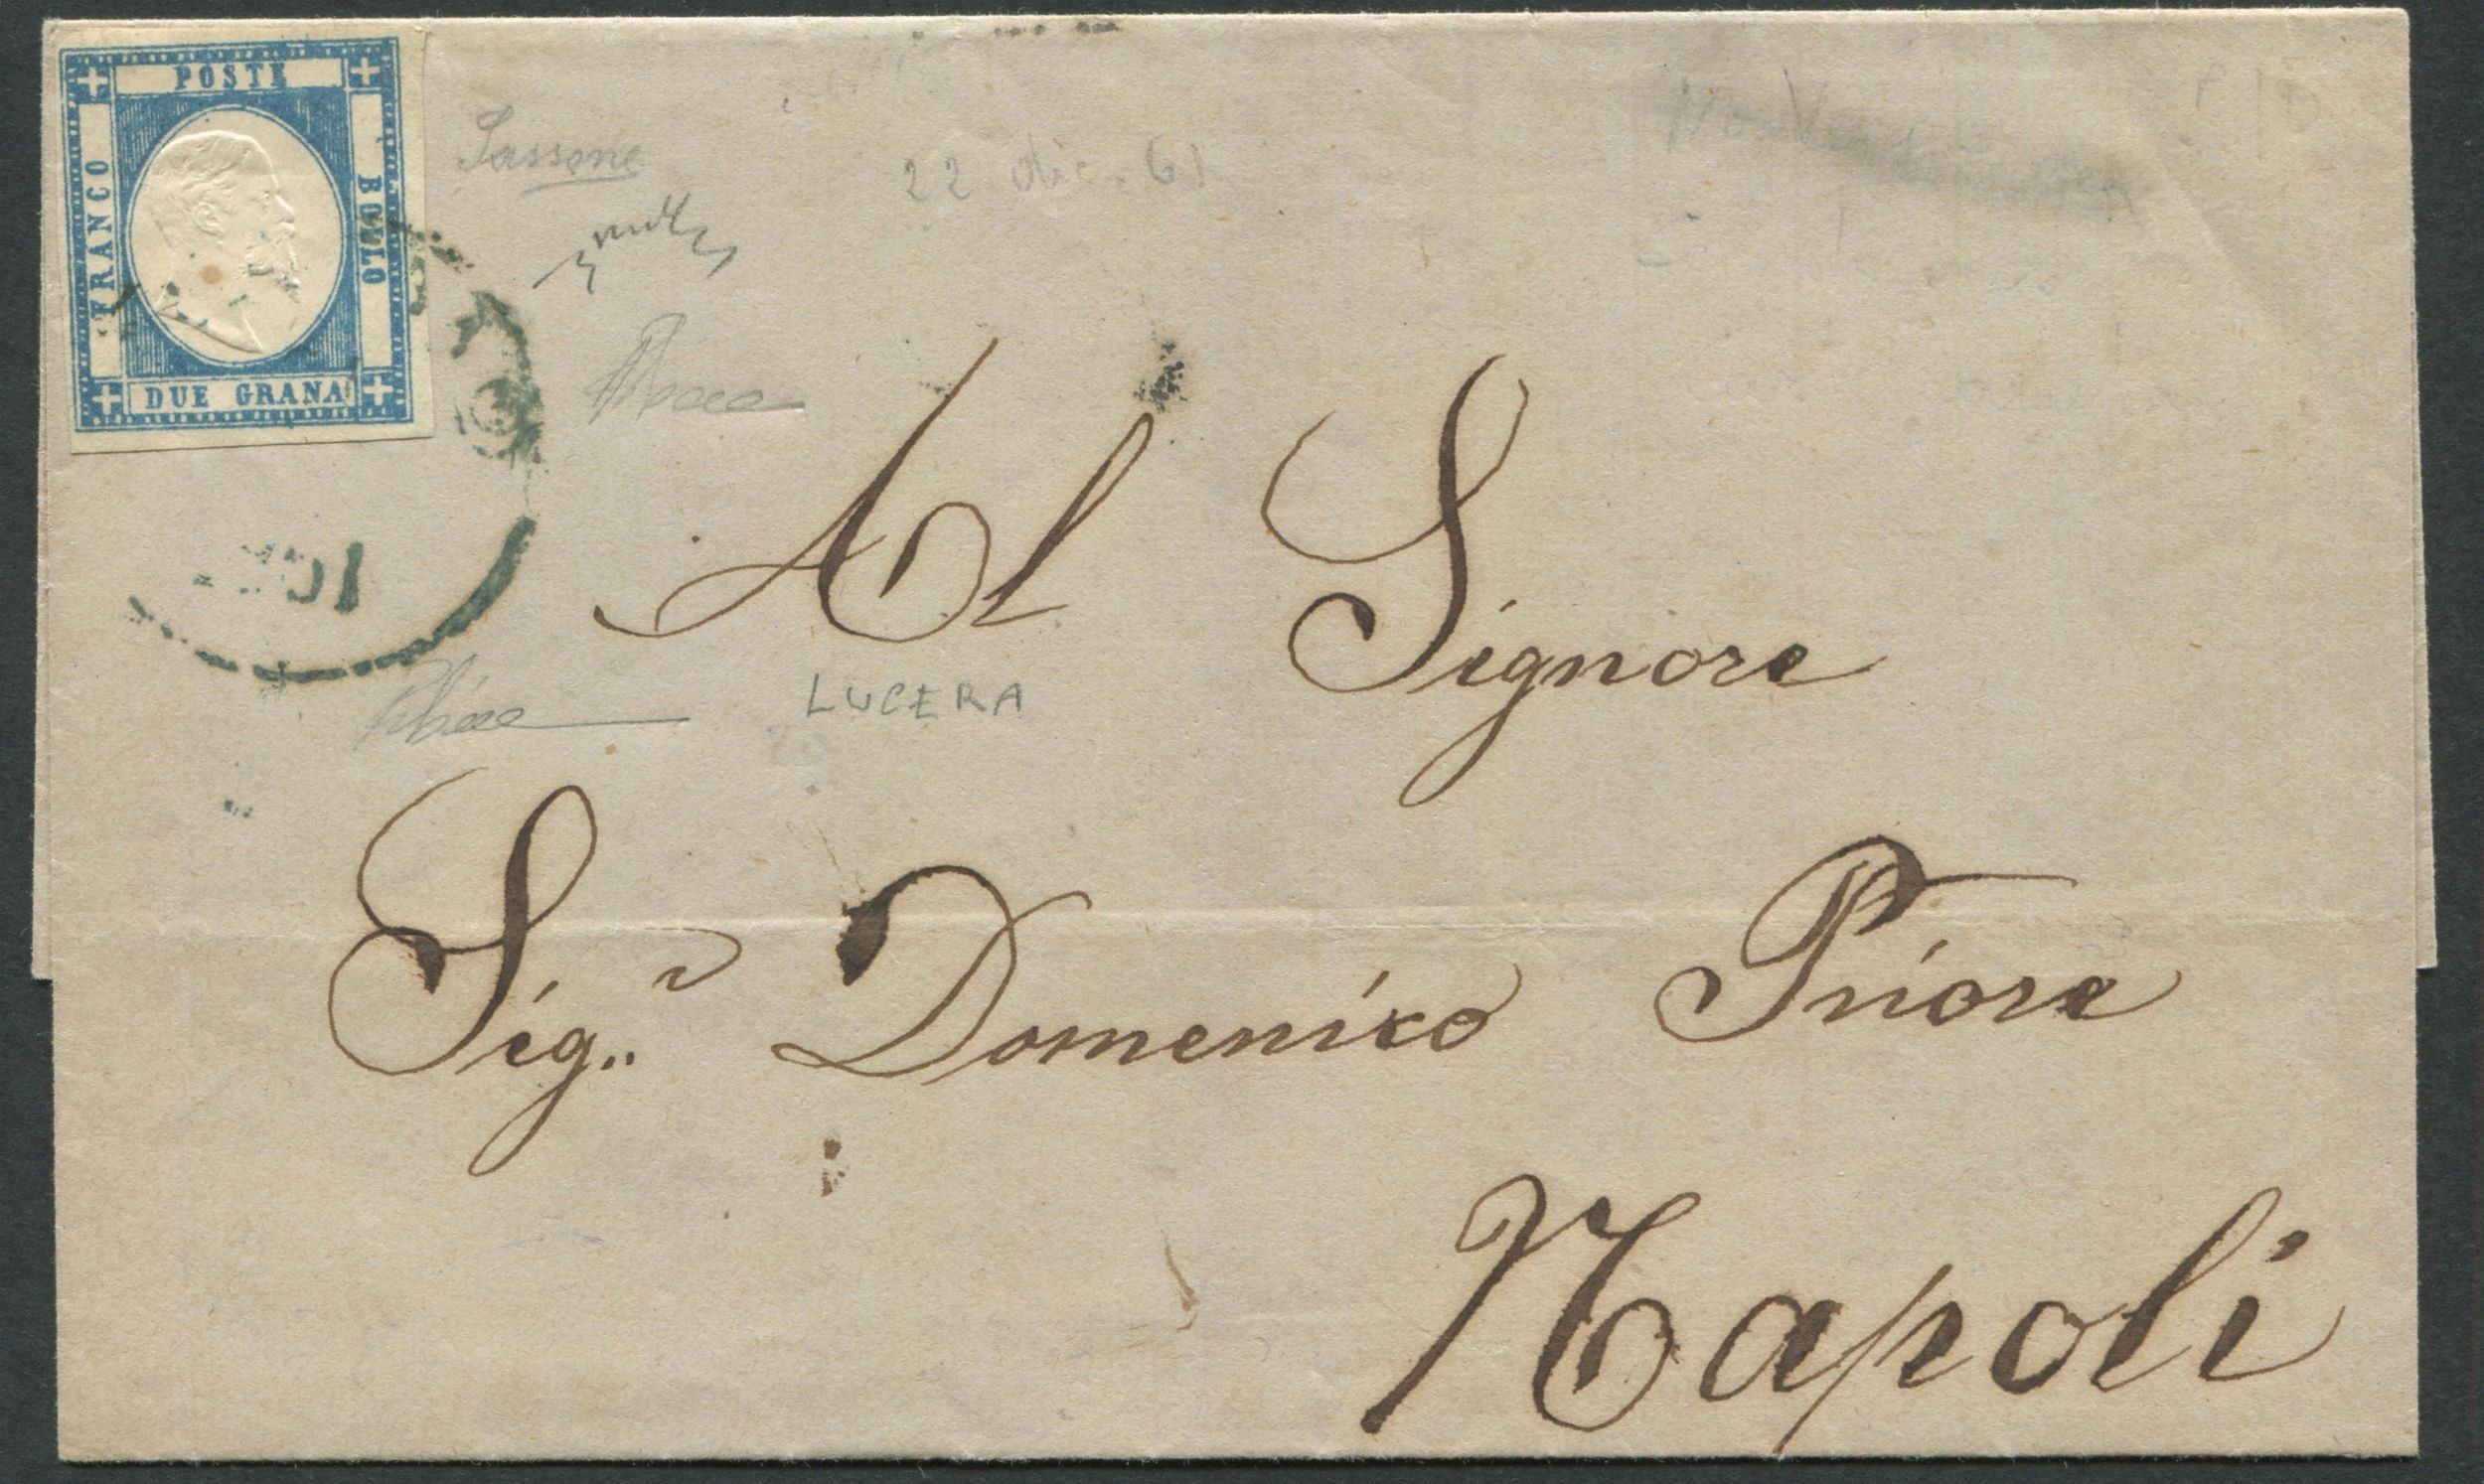 POSTE
FRANCO
BOLLO
DUE GRANA
Sassone
22 dic. 61
Al Signore
LUCERA
Sig.r Domenico Priore
Napoli